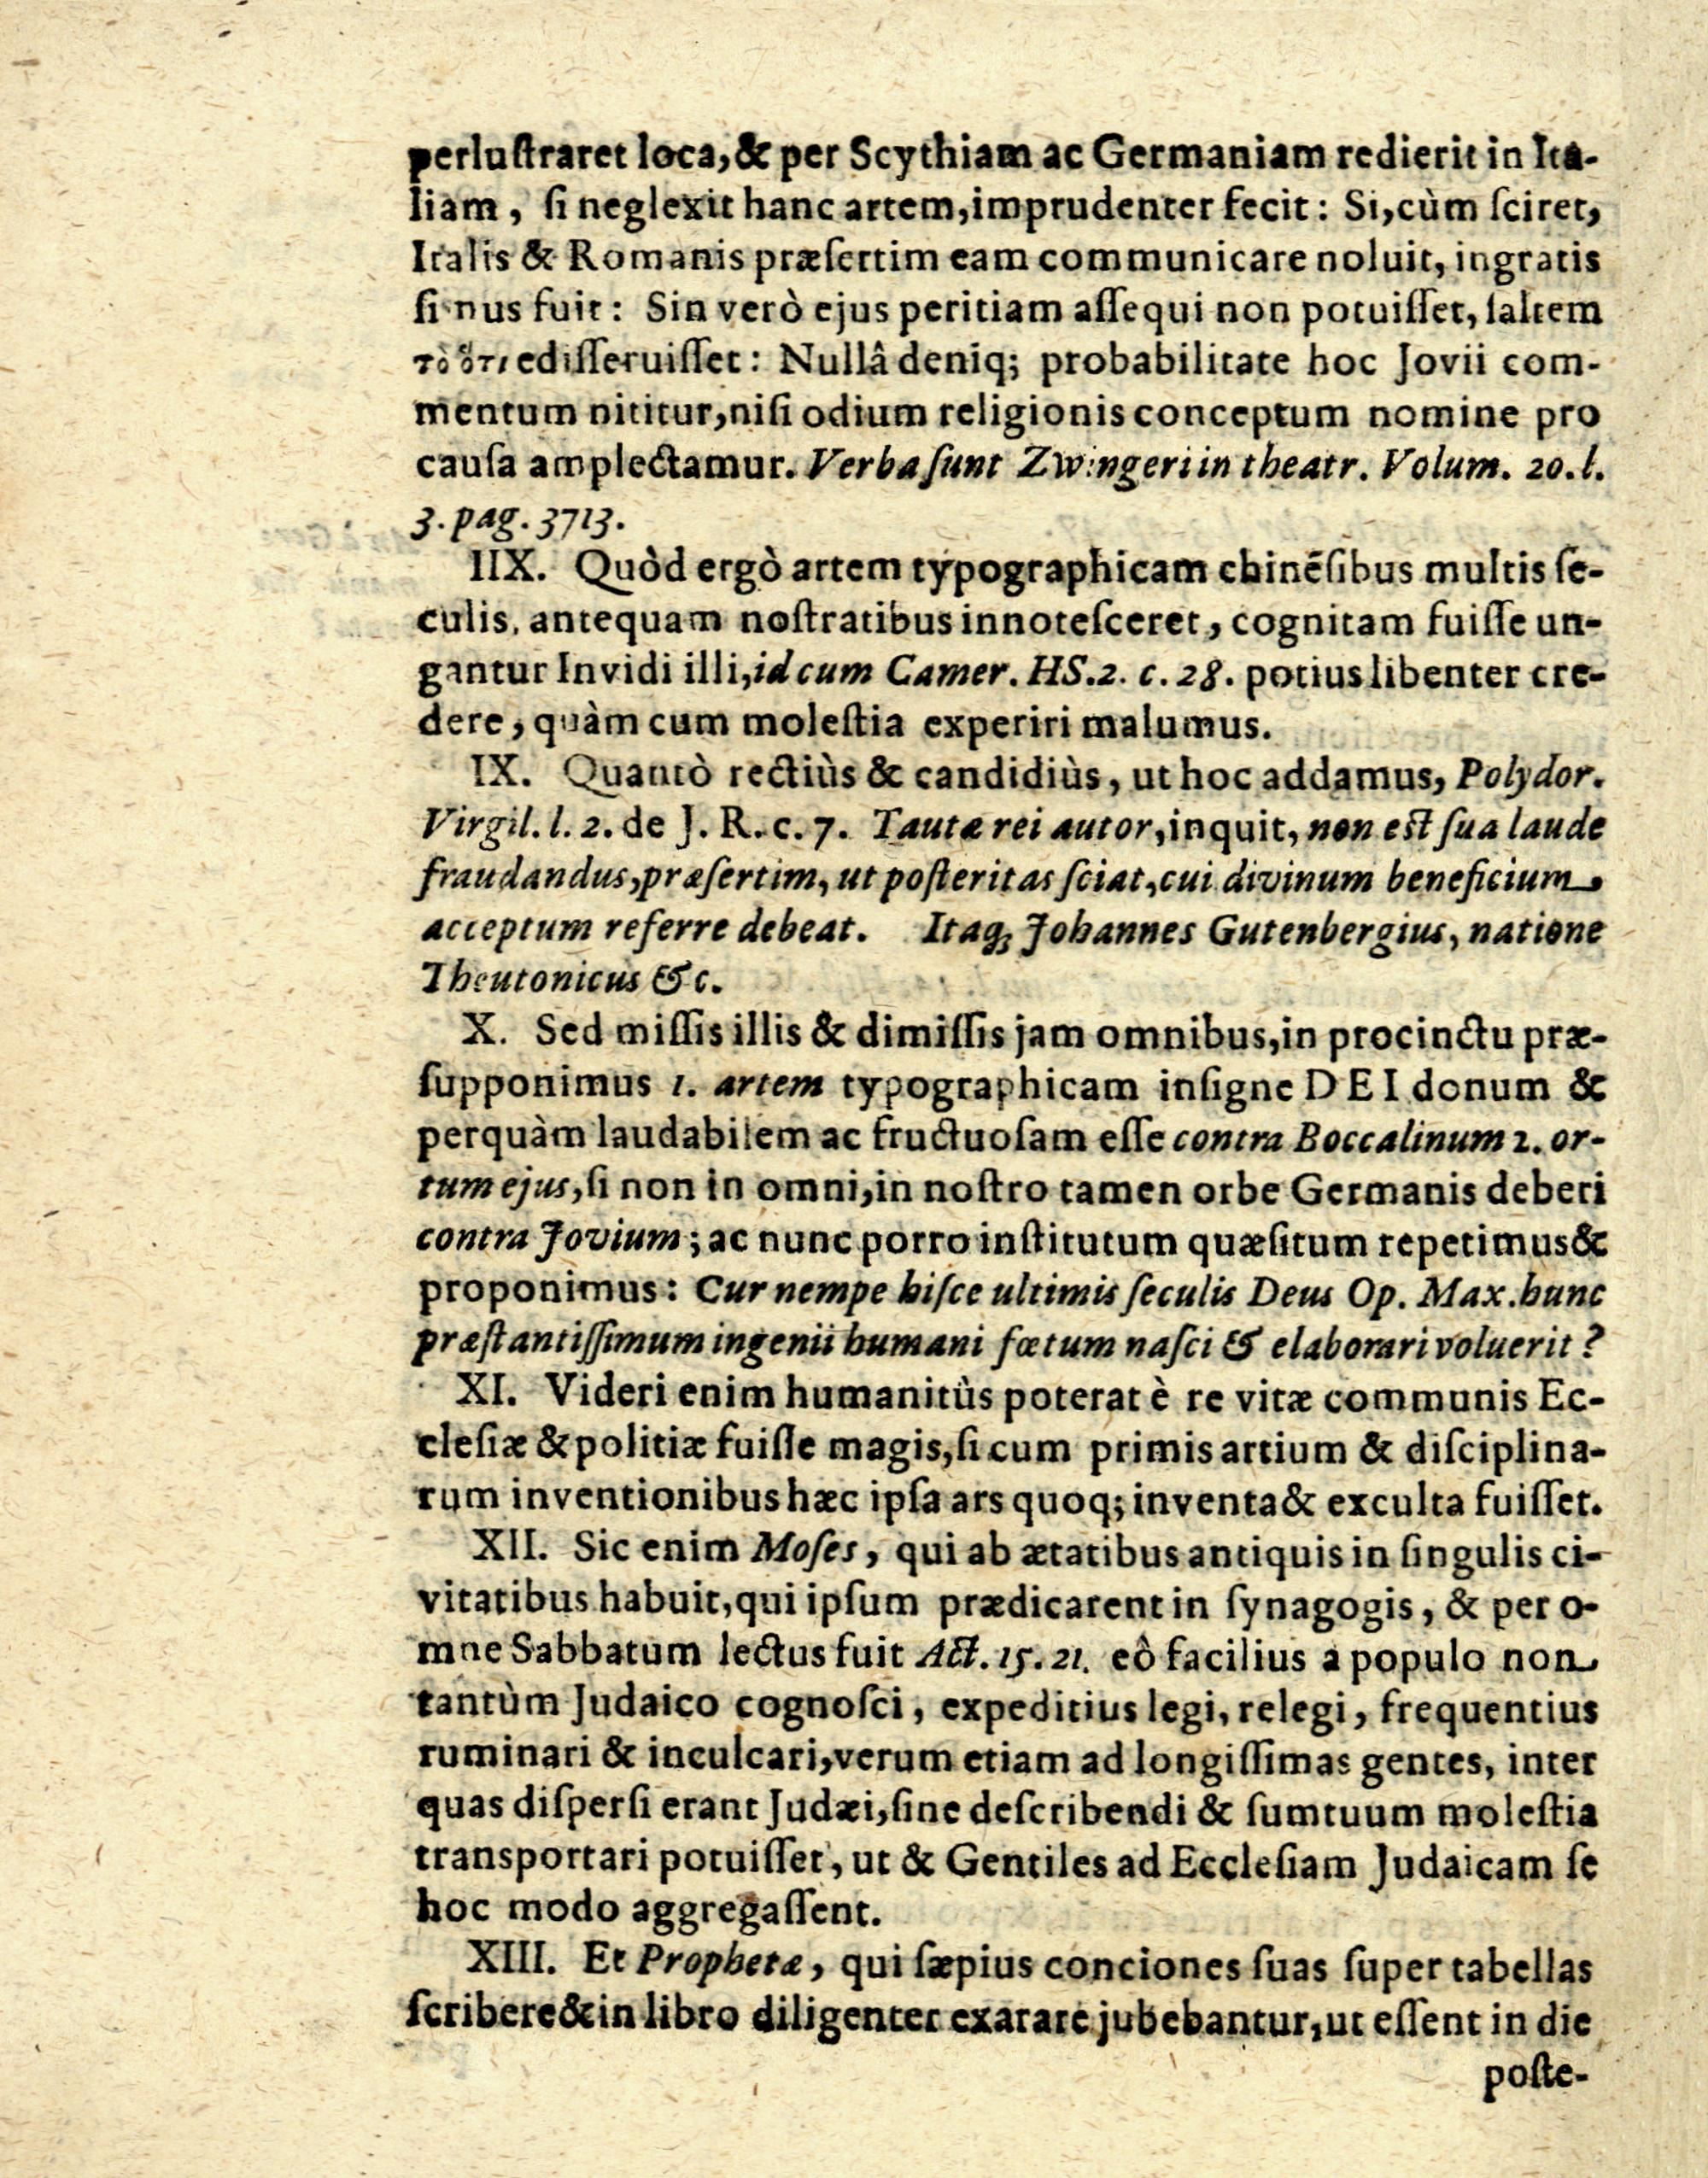 perluſtraret loca, & per Scythiam ac Germaniam redierit in Ita-
liam, ſi neglexit hanc artem, imprudenter fecit: Si, cùm ſciret,
Italis & Romanis præſertim eam communicare noluit, ingratis
ſimus fuit: Sin verò ejus peritiam aſſequi non potuiſſet, ſaltem
τὸ ὅτι ediſſeruiſſet: Nullâ deniq; probabilitate hoc Jovii com-
mentum nititur, niſi odium religionis conceptum nomine pro
cauſa amplectamur. Verba ſunt Zwingeri in theatr. Volum. 20. l.
3. pag. 3713.
IIX. Quòd ergò artem typographicam chinẽſibus multis ſe-
culis, antequam noſtratibus innoteſceret, cognitam fuiſſe un-
gantur Invidi illi, id cum Camer. HS. 2. c. 28. potius libenter cre-
dere, quàm cum moleſtia experiri malumus.
IX. Quantò rectiùs & candidiùs, ut hoc addamus, Polydor.
Virgil. l. 2. de J. R. c. 7. Tautæ rei autor, inquit, non eſt ſua laude
fraudandus, præſertim, ut poſteritas ſciat, cui divinum beneficium
acceptum referre debeat. Itaq; Johannes Gutenbergius, natione
Theutonicus &c.
X. Sed miſſis illis & dimiſſis jam omnibus, in procinctu præ-
ſupponimus 1. artem typographicam inſigne DEI donum &
perquàm laudabilem ac fructuoſam eſſe contra Boccalinum 2. or-
tum ejus, ſi non in omni, in noſtro tamen orbe Germanis deberi
contra Jovium; ac nunc porro inſtitutum quæſitum repetimus &
proponimus: Cur nempe hiſce ultimis ſeculis Deus Op. Max. hunc
præſtantiſſimum ingenii humani fœtum naſci & elaborari voluerit?
XI. Videri enim humanitùs poterat è re vitæ communis Ec-
cleſiæ & politiæ fuiſſe magis, ſi cum primis artium & diſciplina-
rum inventionibus hæc ipſa ars quoq; inventa & exculta fuiſſet.
XII. Sic enim Moſes, qui ab ætatibus antiquis in ſingulis ci-
vitatibus habuit, qui ipſum prædicarent in ſynagogis, & per o-
mne Sabbatum lectus fuit Act. 15. 21. eò facilius a populo non
tantùm Judaico cognoſci, expeditius legi, relegi, frequentius
ruminari & inculcari, verum etiam ad longiſſimas gentes, inter
quas diſperſi erant Judæi, ſine deſcribendi & ſumtuum moleſtia
transportari potuiſſet, ut & Gentiles ad Eccleſiam Judaicam ſe
hoc modo aggregaſſent.
XIII. Et Prophetæ, qui ſæpius conciones ſuas ſuper tabellas
ſcribere & in libro diligenter exarare jubebantur, ut eſſent in die
poſte-